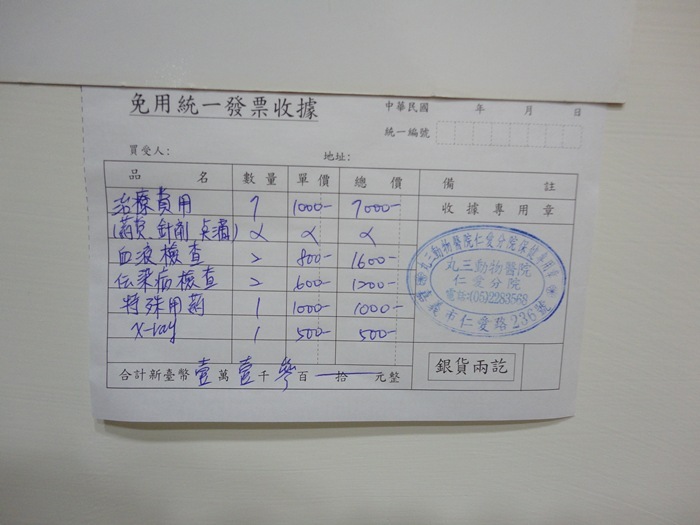 免用統一發票收據
中華民國 年 月 日
統一編號
買受人: 地址:
品 名 數量 單價 總價 備 註
治療費用 7 1000- 7000- 收據專用章
(藥、針劑、点滴) α α α
血液檢查 2 800- 1600-
伝染病檢查 2 600- 1200-
特殊用药 1 1000- 1000-
X-ray 1 500- 500-
丸三動物醫院仁愛分院
丸三動物醫院
仁愛分院
電話:(05)2283568
嘉義市仁愛路236號
合計新臺幣壹萬壹千參百 拾 元整
銀貨兩訖